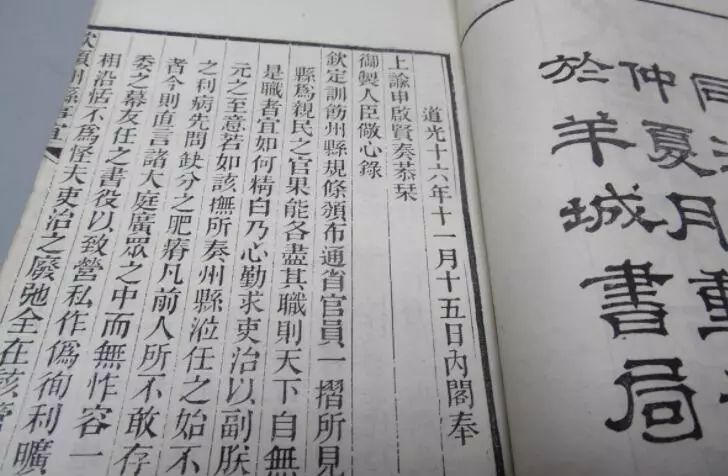 同
仲夏月重
於羊城書局
道光十六年十一月十五日內閣奉
上諭申啟賢奏恭栞
御製人臣儆心錄
欽定訓飭州縣規條頒布通省官員一摺所見
縣爲親民之官果能各盡其職則天下自無
是職者宜如何精白乃心勤求吏治以副朕
元之至意若如該撫所奏州縣涖任之始不
之利病先問缺分之肥瘠凡前人所不敢存
者今則直言諸大庭廣眾之中而無怍容一
委之幕友任之書役以致營私作偽徇利曠
相沿恬不爲怪夫吏治之廢弛全在該管
欽頒州縣事宜